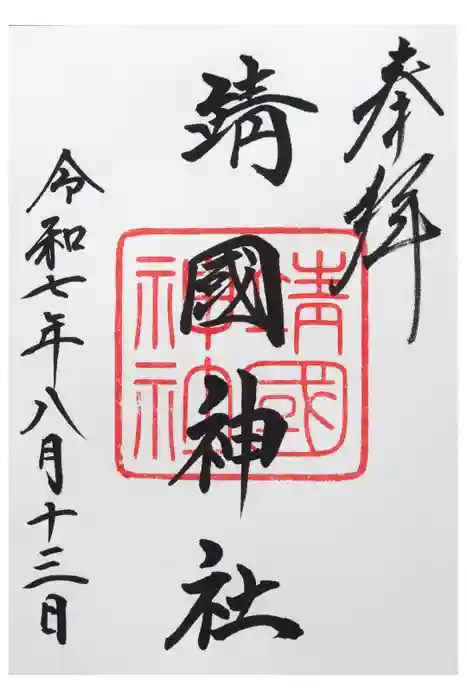 奉拝
靖國神社
靖國神社
令和七年八月十三日